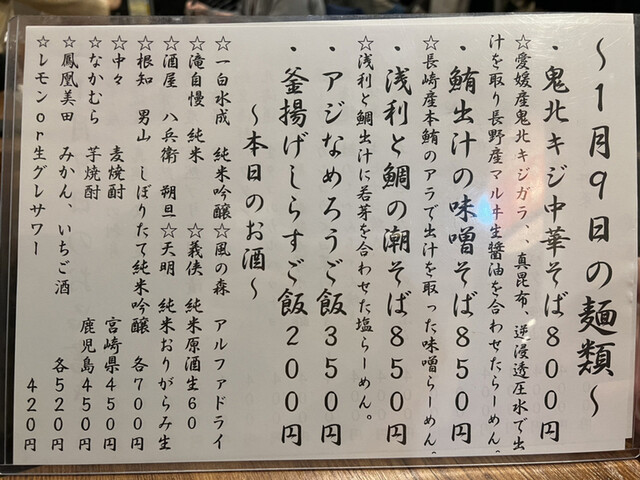 ～1月9日の麺類～
・鬼北キジ中華そば800円
☆愛媛産鬼北キジガラ、、真昆布、逆浸透圧水で出
汁を取り長野産マルヰ生醤油を合わせたらーめん。
・鮪出汁の味噌そば850円
☆長崎産本鮪のアラで出汁を取った味噌らーめん。
・浅利と鯛の潮そば850円
☆浅利と鯛出汁に若芽を合わせた塩らーめん。
・アジなめろうご飯350円
・釜揚げしらすご飯200円
～本日のお酒～
☆一白水成 純米吟醸☆風の森 アルファドライ
☆滝自慢 純米 ☆義侠 純米原酒生60
☆酒屋 八兵衛 朔旦☆天明 純米おりがらみ生
☆根知 男山 しぼりたて純米吟醸 各700円
☆中々 麦焼酎 宮崎県450円
☆なかむら 芋焼酎 鹿児島450円
☆鳳凰美田 みかん、いちご酒 各520円
☆レモンor生グレサワー 420円